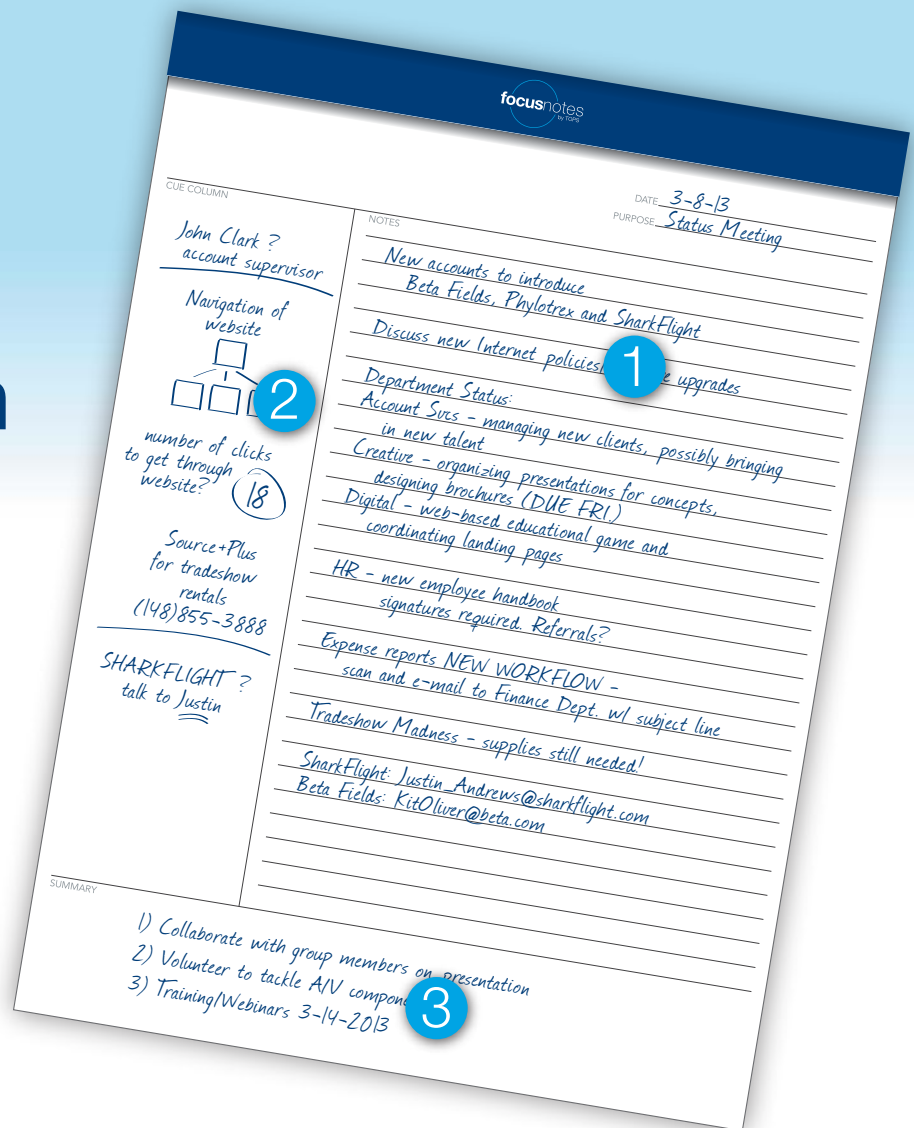 focusnotes
by TOPS
DATE 3-8-13
PURPOSE Status Meeting
CUE COLUMN
John Clark ?
account supervisor
Navigation of
website
2
number of clicks
to get through
website?
18
Source+Plus
for tradeshow
rentals
(148)855-3888
SHARKFLIGHT ?
talk to Justin
NOTES
New accounts to introduce
Beta Fields, Phylotrex and SharkFlight
Discuss new Internet policies
upgrades
1
Department Status:
Account Svcs - managing new clients, possibly bringing
in new talent
Creative - organizing presentations for concepts,
designing brochures (DUE FRI.)
Digital - web-based educational game and
coordinating landing pages
HR - new employee handbook
signatures required. Referrals?
Expense reports NEW WORKFLOW -
scan and e-mail to Finance Dept. w/ subject line
Tradeshow Madness - supplies still needed!
SharkFlight: Justin_Andrews@sharkflight.com
Beta Fields: KitOliver@beta.com
SUMMARY
1) Collaborate with group members on presentation
2) Volunteer to tackle A/V
3) Training/Webinars 3-14-2013
3